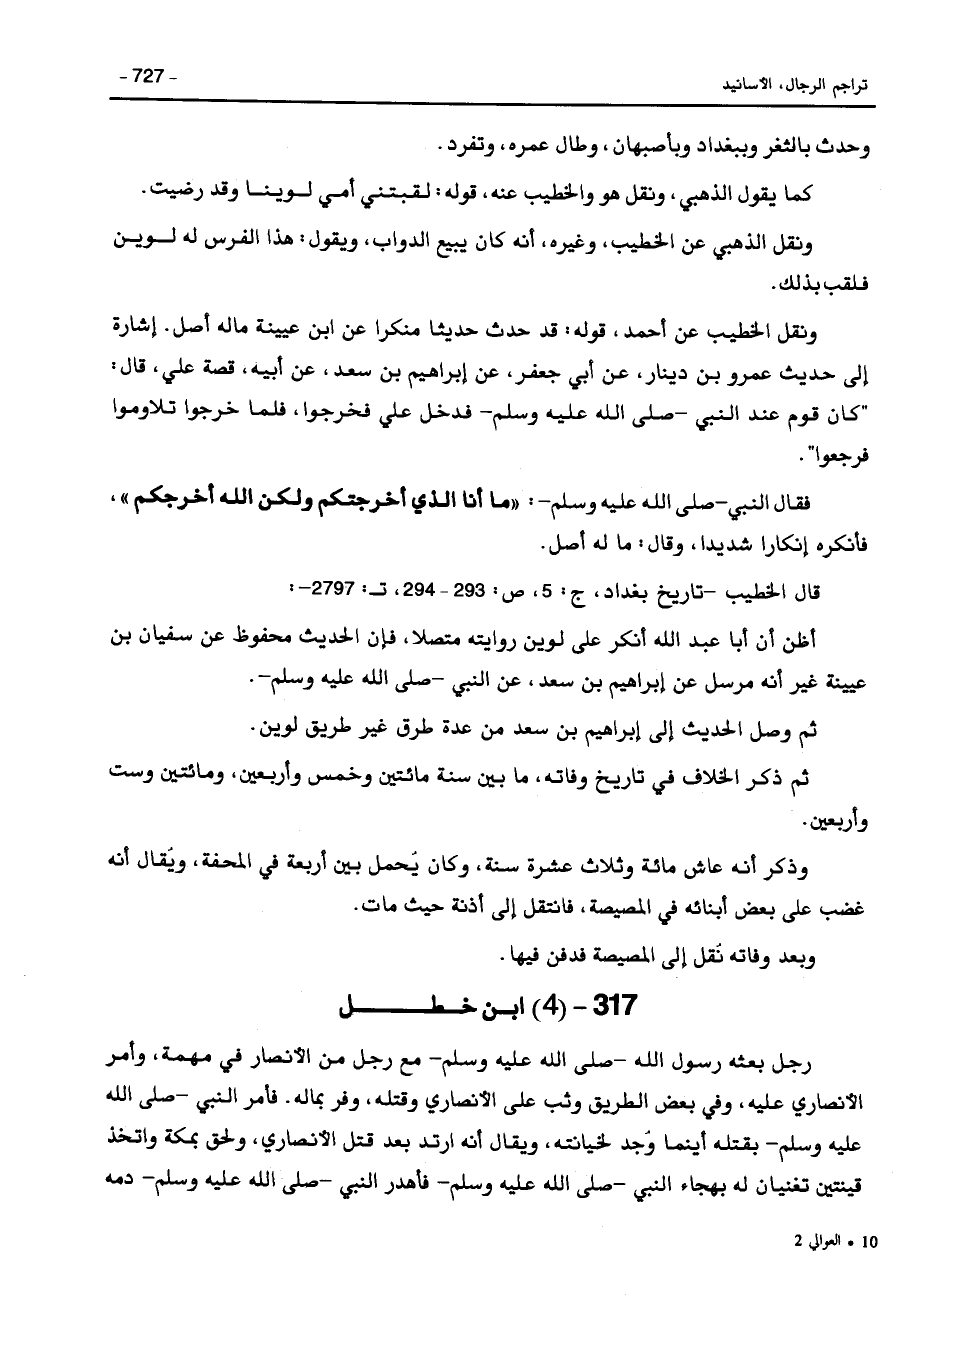 تراجم الرجال، الأسانيد
- 727 -
وحدث بالثغر وببغداد وبأصبهان، وطال عمره، وتفرد.
كما يقول الذهبي، ونقل هو والخطيب عنه، قوله: لقبتني أمي لوينا وقد رضيت.
ونقل الذهبي عن الخطيب، وغيره، أنه كان يبيع الدواب، ويقول: هذا الفرس له لوين
فلقب بذلك.
ونقل الخطيب عن أحمد، قوله: قد حدث حديثا منكرا عن ابن عيينة ماله أصل. إشارة
إلى حديث عمرو بن دينار، عن أبي جعفر، عن إبراهيم بن سعد، عن أبيه، قصة علي، قال:
"كان قوم عند النبي -صلى الله عليه وسلم- فدخل علي فخرجوا، فلما خرجوا تلاوموا
فرجعوا".
فقال النبي-صلى الله عليه وسلم-: «ما أنا الذي أخرجتكم ولكن الله أخرجكم»،
فأنكره إنكارا شديدا، وقال: ما له أصل.
قال الخطيب -تاريخ بغداد، ج: 5، ص: 293 - 294، تـ: 2797-:
أظن أن أبا عبد الله أنكر على لوين روايته متصلا، فإن الحديث محفوظ عن سفيان بن
عيينة غير أنه مرسل عن إبراهيم بن سعد، عن النبي -صلى الله عليه وسلم-.
ثم وصل الحديث إلى إبراهيم بن سعد من عدة طرق غير طريق لوين.
ثم ذكر الخلاف في تاريخ وفاته، ما بين سنة مائتين وخمس وأربعين، ومائتين وست
وأربعين.
وذكر أنه عاش مائة وثلاث عشرة سنة، وكان يُحمل بين أربعة في المحفة، ويُقال أنه
غضب على بعض أبنائه في المصيصة، فانتقل إلى أذنة حيث مات.
وبعد وفاته نُقل إلى المصيصة فدفن فيها.
317 - (4) ابن خطل
رجل بعثه رسول الله -صلى الله عليه وسلم- مع رجل من الأنصار في مهمة، وأمر
الأنصاري عليه، وفي بعض الطريق وثب على الأنصاري وقتله، وفر بماله. فأمر النبي -صلى الله
عليه وسلم- بقتله أينما وُجد لخيانته، ويقال أنه ارتد بعد قتل الأنصاري، ولحق بمكة واتخذ
قينتين تغنيان له بهجاء النبي -صلى الله عليه وسلم- فأهدر النبي -صلى الله عليه وسلم- دمه
10 • العوالي 2